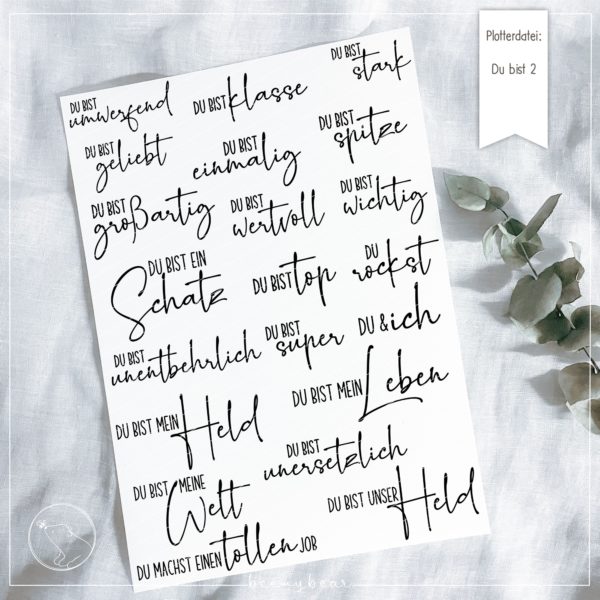 Plotterdatei:
Du bist 2
DU BIST stark
DU BIST umwerfend
DU BIST klasse
DU BIST spitze
DU BIST geliebt
DU BIST einmalig
DU BIST wichtig
DU BIST großartig
DU BIST wertvoll
DU rockst
DU BIST EIN Schatz
DU BIST top
DU & ich
DU BIST unentbehrlich
DU BIST super
DU BIST MEIN Leben
DU BIST MEIN Held
DU BIST unersetzlich
DU BIST MEINE Welt
DU BIST UNSER Held
DU MACHST EINEN tollen JOB
beemybear